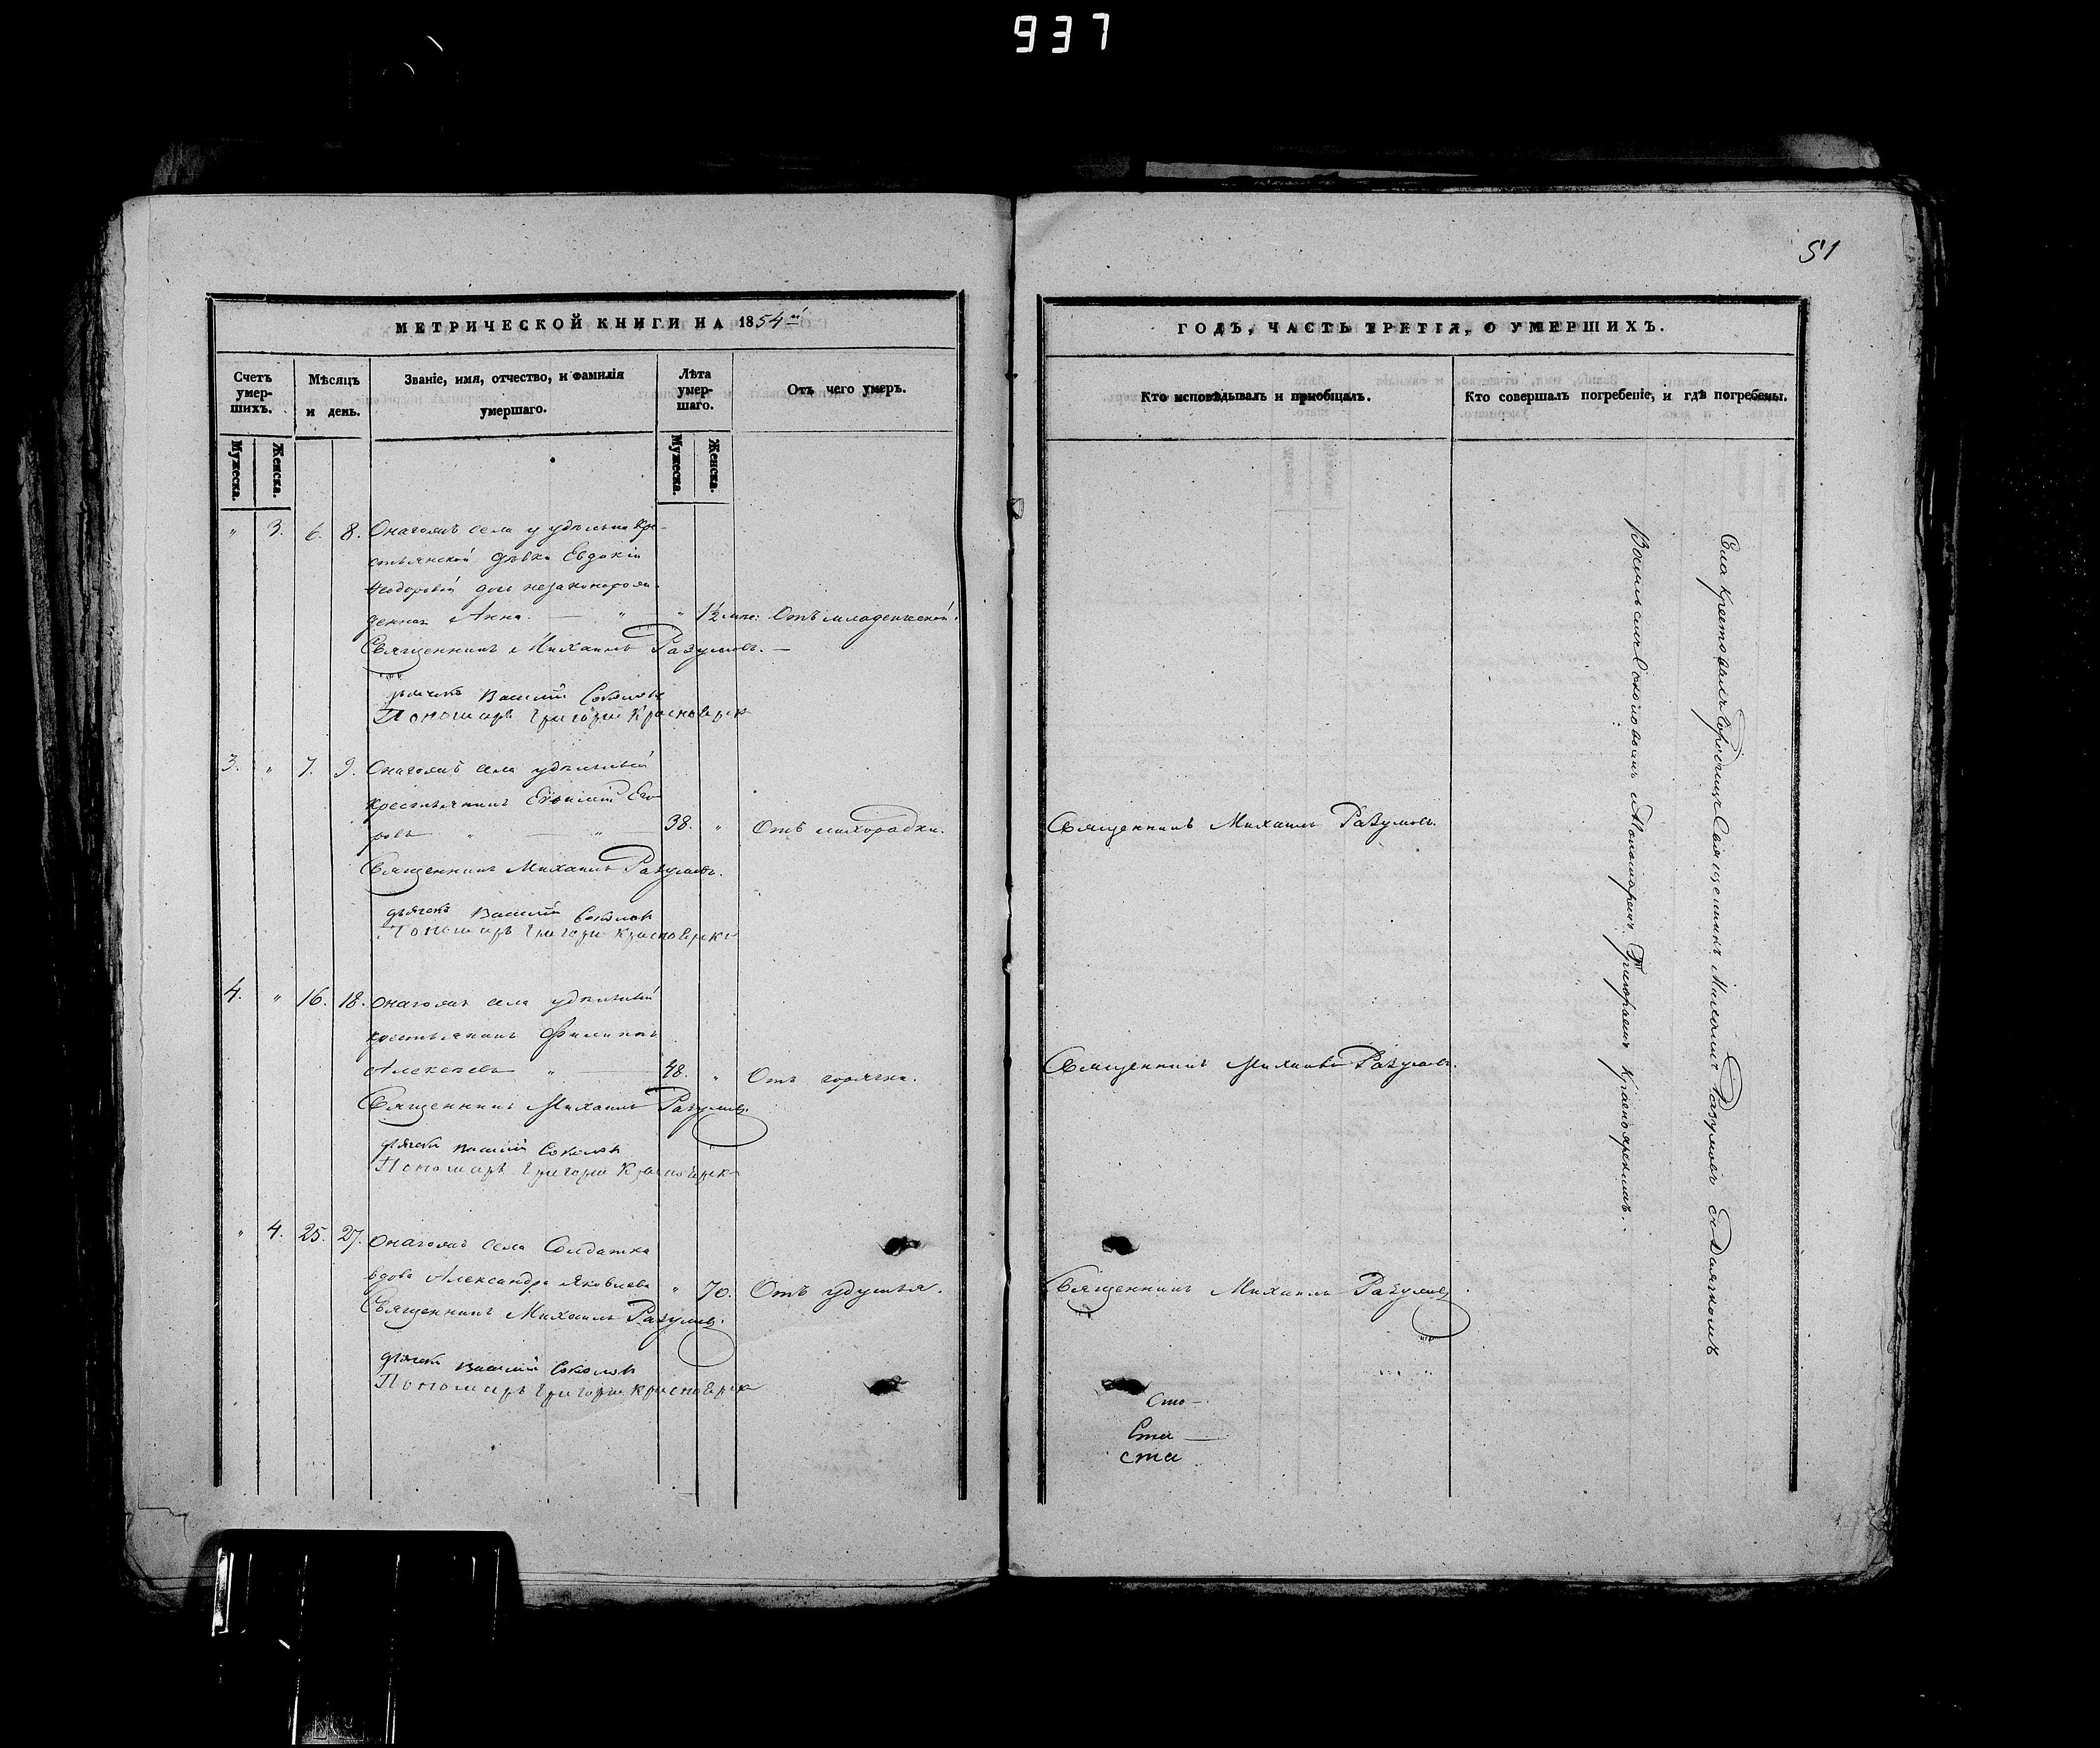 937
51
МЕТРИЧЕСКОЙ КНИГИ НА 1854й
Счетъ умер-шихъ.
Мѣсяцъ и день.
Званіе, имя, отчество, и фамилія умершаго.
Лѣта умер-шаго.
Отъ чего умеръ.
Мужеска.
Женска.
Мужеска.
Женска.
" 3. 6. 8. Онагожъ села у удѣльна кре-
стьянской дѣвки Евдокіи
Ѳедоровой дочь незаконорож-
денная Анна. — " " 1½ мѣс: Отъ младенческой.
Священникъ Михаилъ Разумовъ. —
дьячекъ Василій Соколовъ
Пономарь Григорій Красноярск
3. " 7. 9. Онагожъ села удѣльный
крестьянинъ Евѳимій Его
ровъ " — " 38. " Отъ лихорадки.
Священникъ Михаилъ Разумовъ.
дьячекъ Василій Соколовъ
Пономарь Григори Красноярск
4. " 16. 18. Онагожъ села удѣльный
крестьянинъ Филиппъ
Алексѣевъ " — 48. " Отъ горячки.
Священникъ Михаилъ Разумовъ.
дьячекъ Василій Соколовъ
Пономарь Григори Красноярск
" 4. 25. 27. Онагожъ села Солдатка
вдова Александра Яковлева " 70. Отъ удушья.
Священникъ Михаилъ Разумовъ.
дьячекъ Василій Соколовъ
Пономарь Григори Красноярск
ГОДЪ, ЧАСТЬ ТРЕТІЯ, О УМЕРШИХЪ.
Кто исповѣдывалъ и пріобщалъ.
Кто совершалъ погребеніе, и гдѣ погребены.
Священникъ Михаилъ Разумовъ.
Священникъ Михаилъ Разумовъ.
Священникъ Михаилъ Разумовъ
Сто —
Ста —
ста
Священникъ Михаилъ Разумовъ съ Дьячкомъ
Васильемъ Соколовымъ и Пономаремъ Григорьемъ Красноярскимъ.